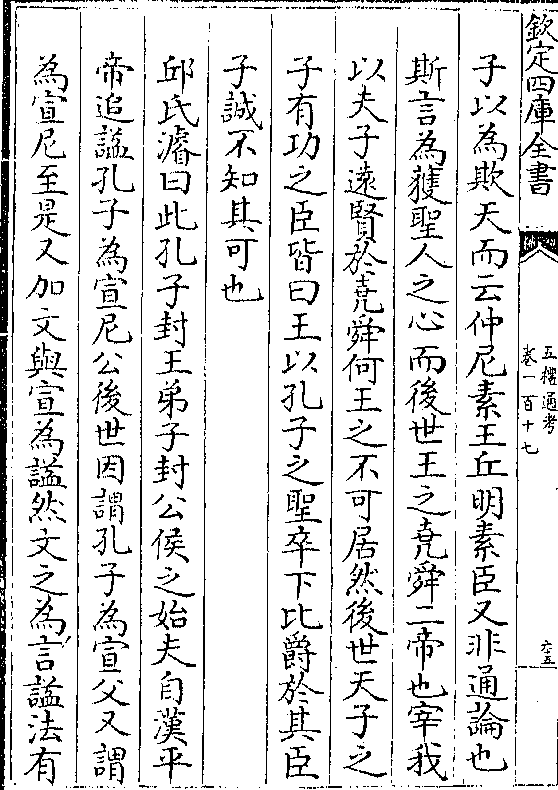 欽定四庫全書
五禮通考
卷一百十七
六五
子以為欺天而云仲尼素王丘明素臣又非通論也
斯言為蒦聖人之心而後世王之堯舜二帝也宰我
以夫子逺賢於堯舜何王之不可居然後世天子之
子有功之臣皆曰王以孔子之聖卒下比爵於其臣
子誠不知其可也
邱氏濬曰此孔子封王弟子封公侯之始夫自漢平
帝追諡孔子為宣尼公後世因謂孔子為宣父又謂
為宣尼至是又加文與宣為諡然文之為言諡法有